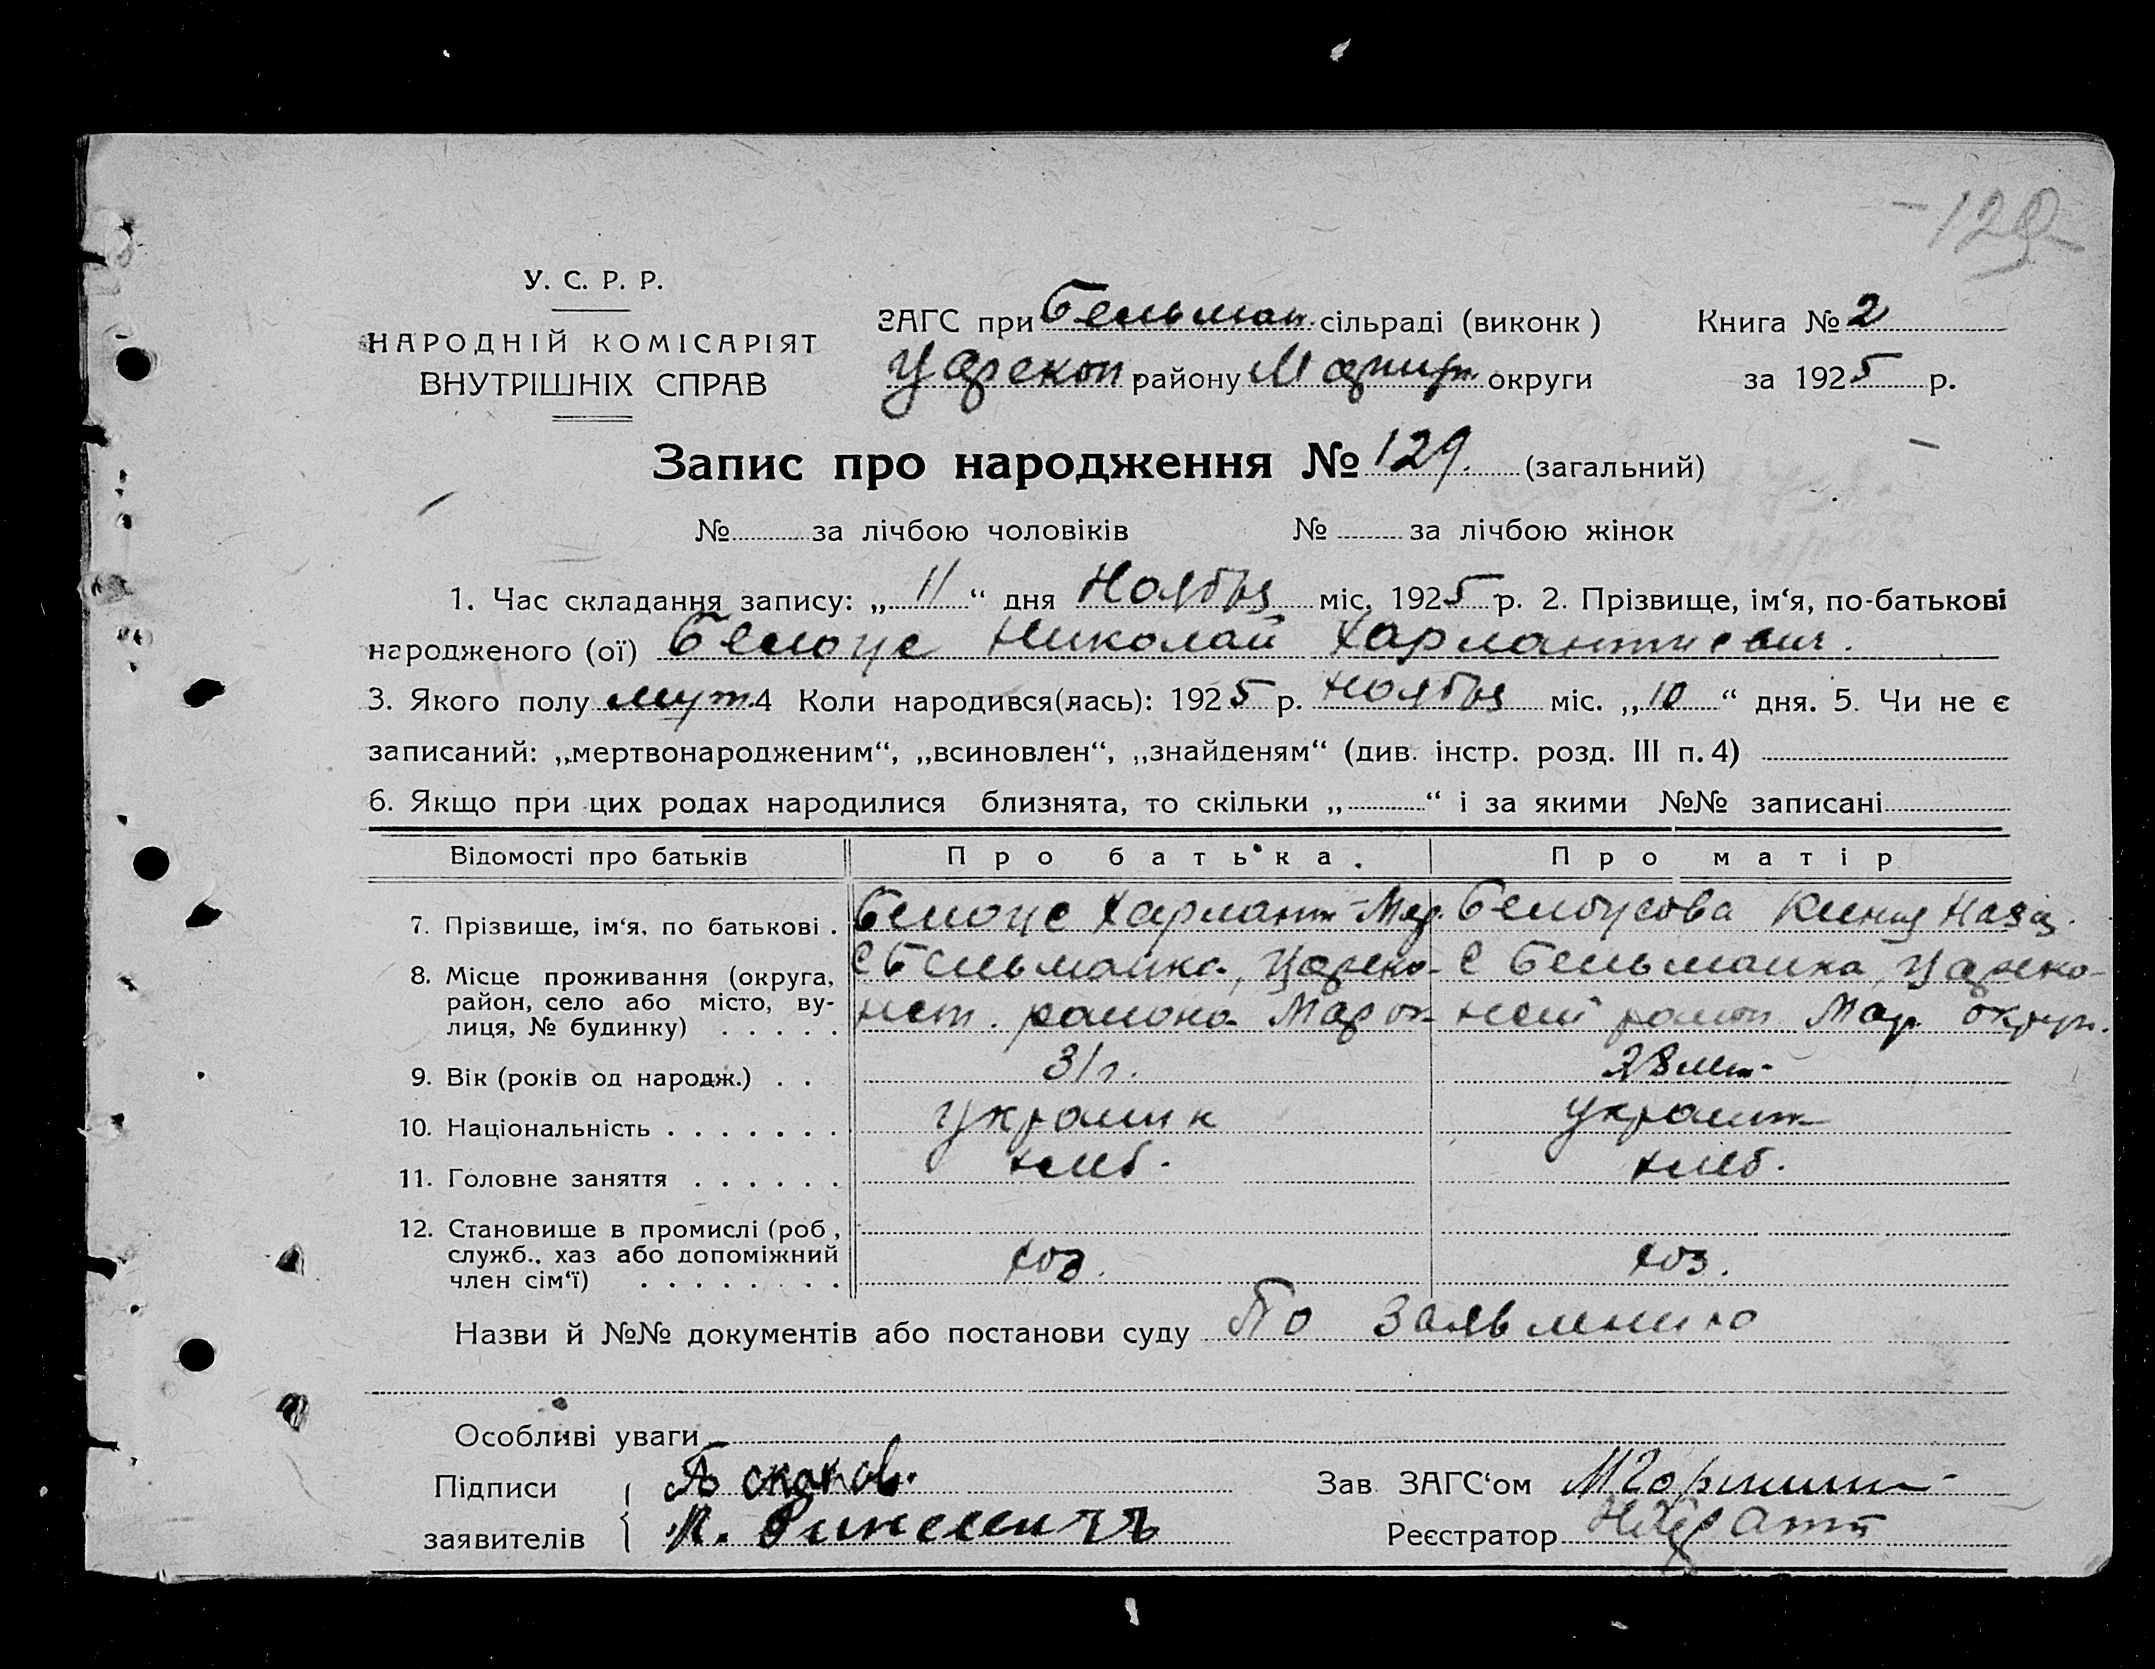 129
У. С. Р. Р.
НАРОДНІЙ КОМІСАРІЯТ
ВНУТРІШНІХ СПРАВ
ЗАГС при Бельман. сільраді (виконк)
Книга № 2
Царекон району Мариуп. округи
за 1925 р.
Запис про народження № 129. (загальний)
№ за лічбою чоловіків № за лічбою жінок
1. Час складання запису: „ 11 “ дня Ноября міс. 1925 р. 2. Прізвище, ім‘я, по-батькові
народженого (ої) Белоус Николай Харлантиевич.
3. Якого полу муж. 4 Коли народився(лась): 1925 р. Ноября міс. „ 10 “ дня. 5. Чи не є
записаний: „мертвонародженим“, „всиновлен“, „знайденям“ (див. інстр. розд. III п. 4)
6. Якщо при цих родах народилися близнята, то скільки „ “ і за якими №№ записані
Відомості про батьків Про батька. Про матір
7. Прізвище, ім‘я, по батькові . Белоус Харлант Белоусова Назар.
8. Місце проживання (округа, С Бельманка, Цареко- С Бельманка, Цареко-
район, село або місто, ву-
лиця, № будинку) . . . . . нст. района Мар ок нст район Мар. округ.
9. Вік (років од народж.) . . 31 г. 28 лет.
10. Національність . . . . . . . украин украин
11. Головне заняття . . . . . . хлеб. хлеб.
12. Становище в промислі (роб,
служб., хаз або допоміжний хоз. хоз.
член сім‘ї) . . . . . . . .
Назви й №№ документів або постанови суду По заявлению
Особливі уваги
Підписи
Зав ЗАГС‘ом
заявителів
Реєстратор